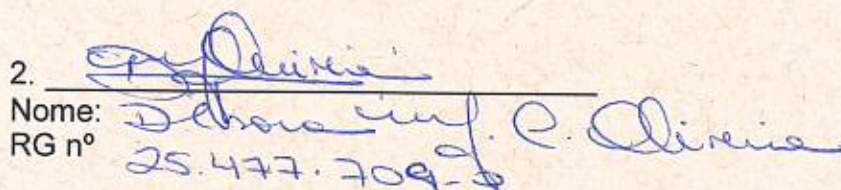 2.
Nome: Debora C. Oliveira
RG nº 25.477.709-